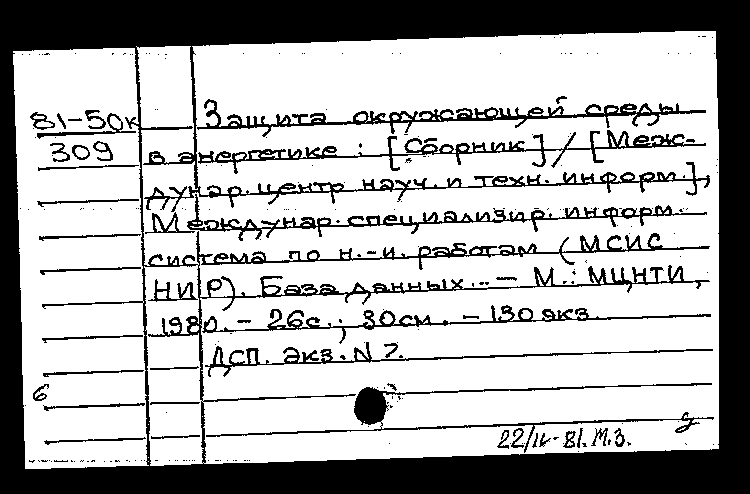 81-50к Защита окружающей среды
309 в энергетике : [Сборник] / [Меж-
дунар. центр науч. и техн. информ.],
Междунар. специализир. информ.
система по н.-и. работам (МСИС
НИР). База данных. - М.: МЦНТИ,
1980. - 26с.; 30см. - 130 экз.
ДСП. Экз. N 7.
6
22/IV-81. М.З.